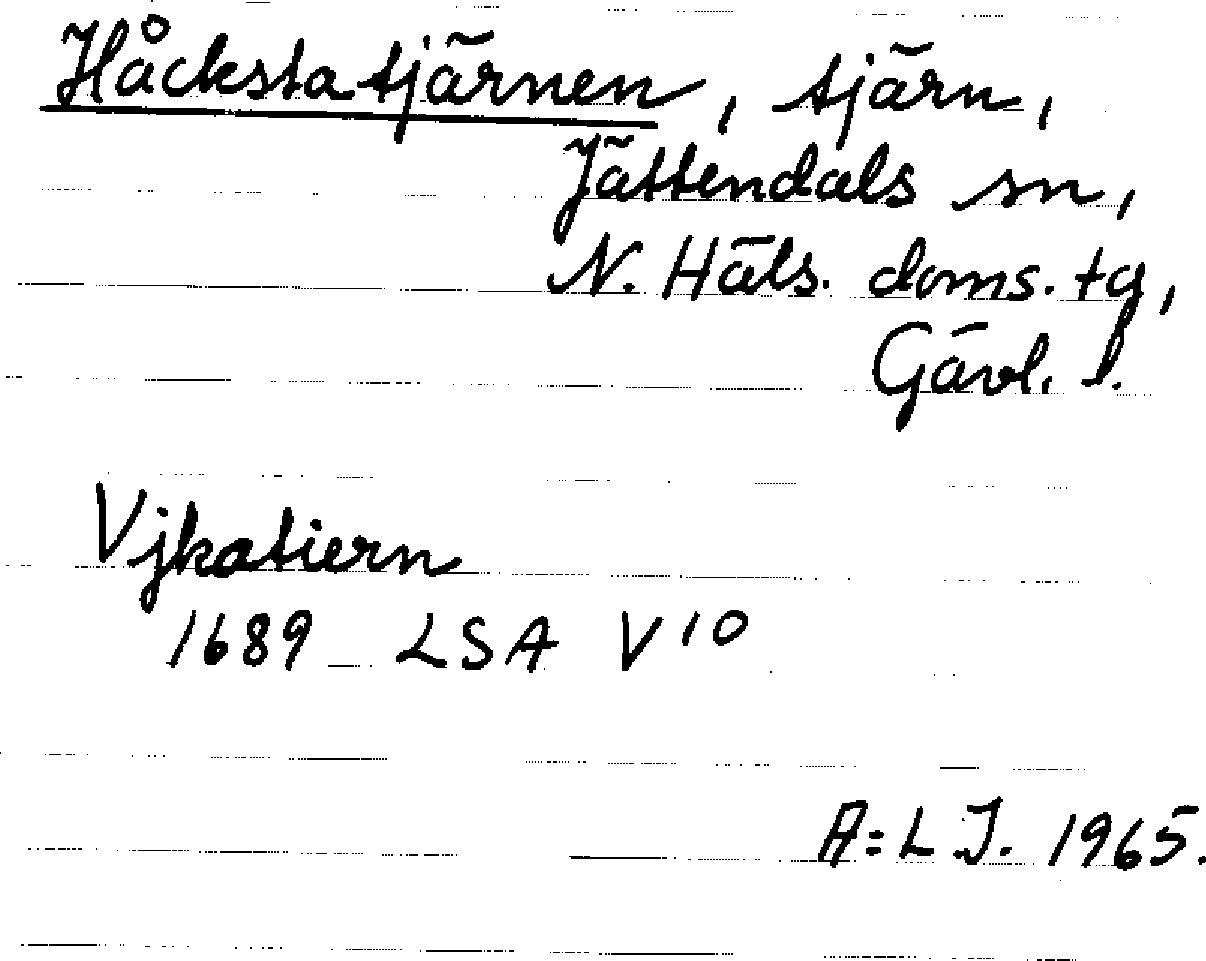 Håckstatjärnen, tjärn,
Jättendals sn,
N. Häls. doms. tg,
Gävl. l.
Vjkatiern
1689 LSA V10
A=L J. 1965.